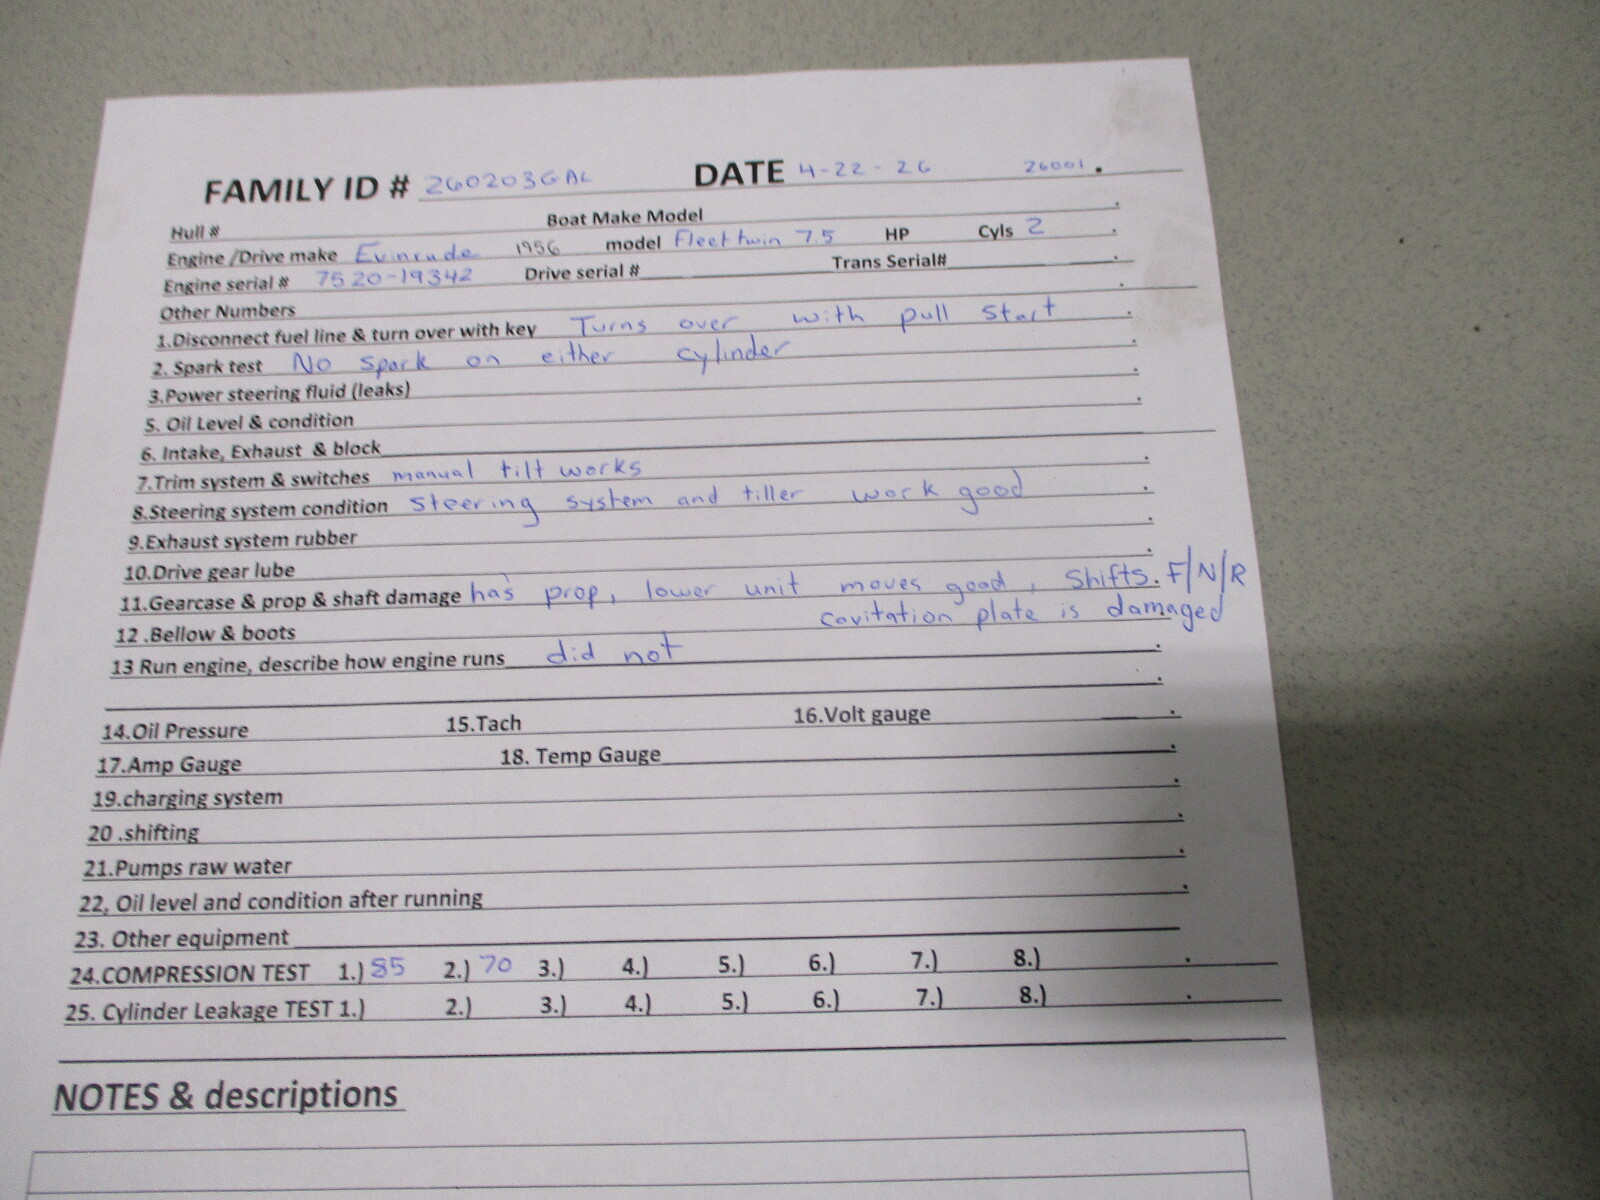 FAMILY ID # 260203GAL DATE 4-22-26 26001.
Hull # Boat Make Model .
Engine /Drive make Evinrude 1956 model Fleet twin 7.5 HP Cyls 2 .
Engine serial # 7520-19342 Drive serial # Trans Serial# .
Other Numbers .
1.Disconnect fuel line & turn over with key Turns over with pull start .
2. Spark test No spark on either cylinder .
3.Power steering fluid (leaks) .
5. Oil Level & condition .
6. Intake, Exhaust & block
7.Trim system & switches manual tilt works .
8.Steering system condition Steering system and tiller work good .
9.Exhaust system rubber .
10.Drive gear lube .
11.Gearcase & prop & shaft damage has prop, lower unit moves good, Shifts. F/N/R
cavitation plate is damaged
12 .Bellow & boots
13 Run engine, describe how engine runs did not .
.
14.Oil Pressure 15.Tach 16.Volt gauge .
17.Amp Gauge 18. Temp Gauge .
19.charging system .
20 .shifting .
21.Pumps raw water .
22, Oil level and condition after running .
23. Other equipment
24.COMPRESSION TEST 1.) 85 2.) 70 3.) 4.) 5.) 6.) 7.) 8.) .
25. Cylinder Leakage TEST 1.) 2.) 3.) 4.) 5.) 6.) 7.) 8.) .
NOTES & descriptions